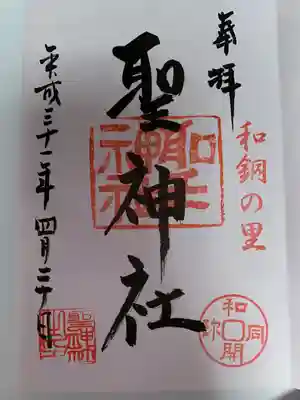 奉拝
和銅の里
聖神社
平成三十一年四月二十日
和同開珎